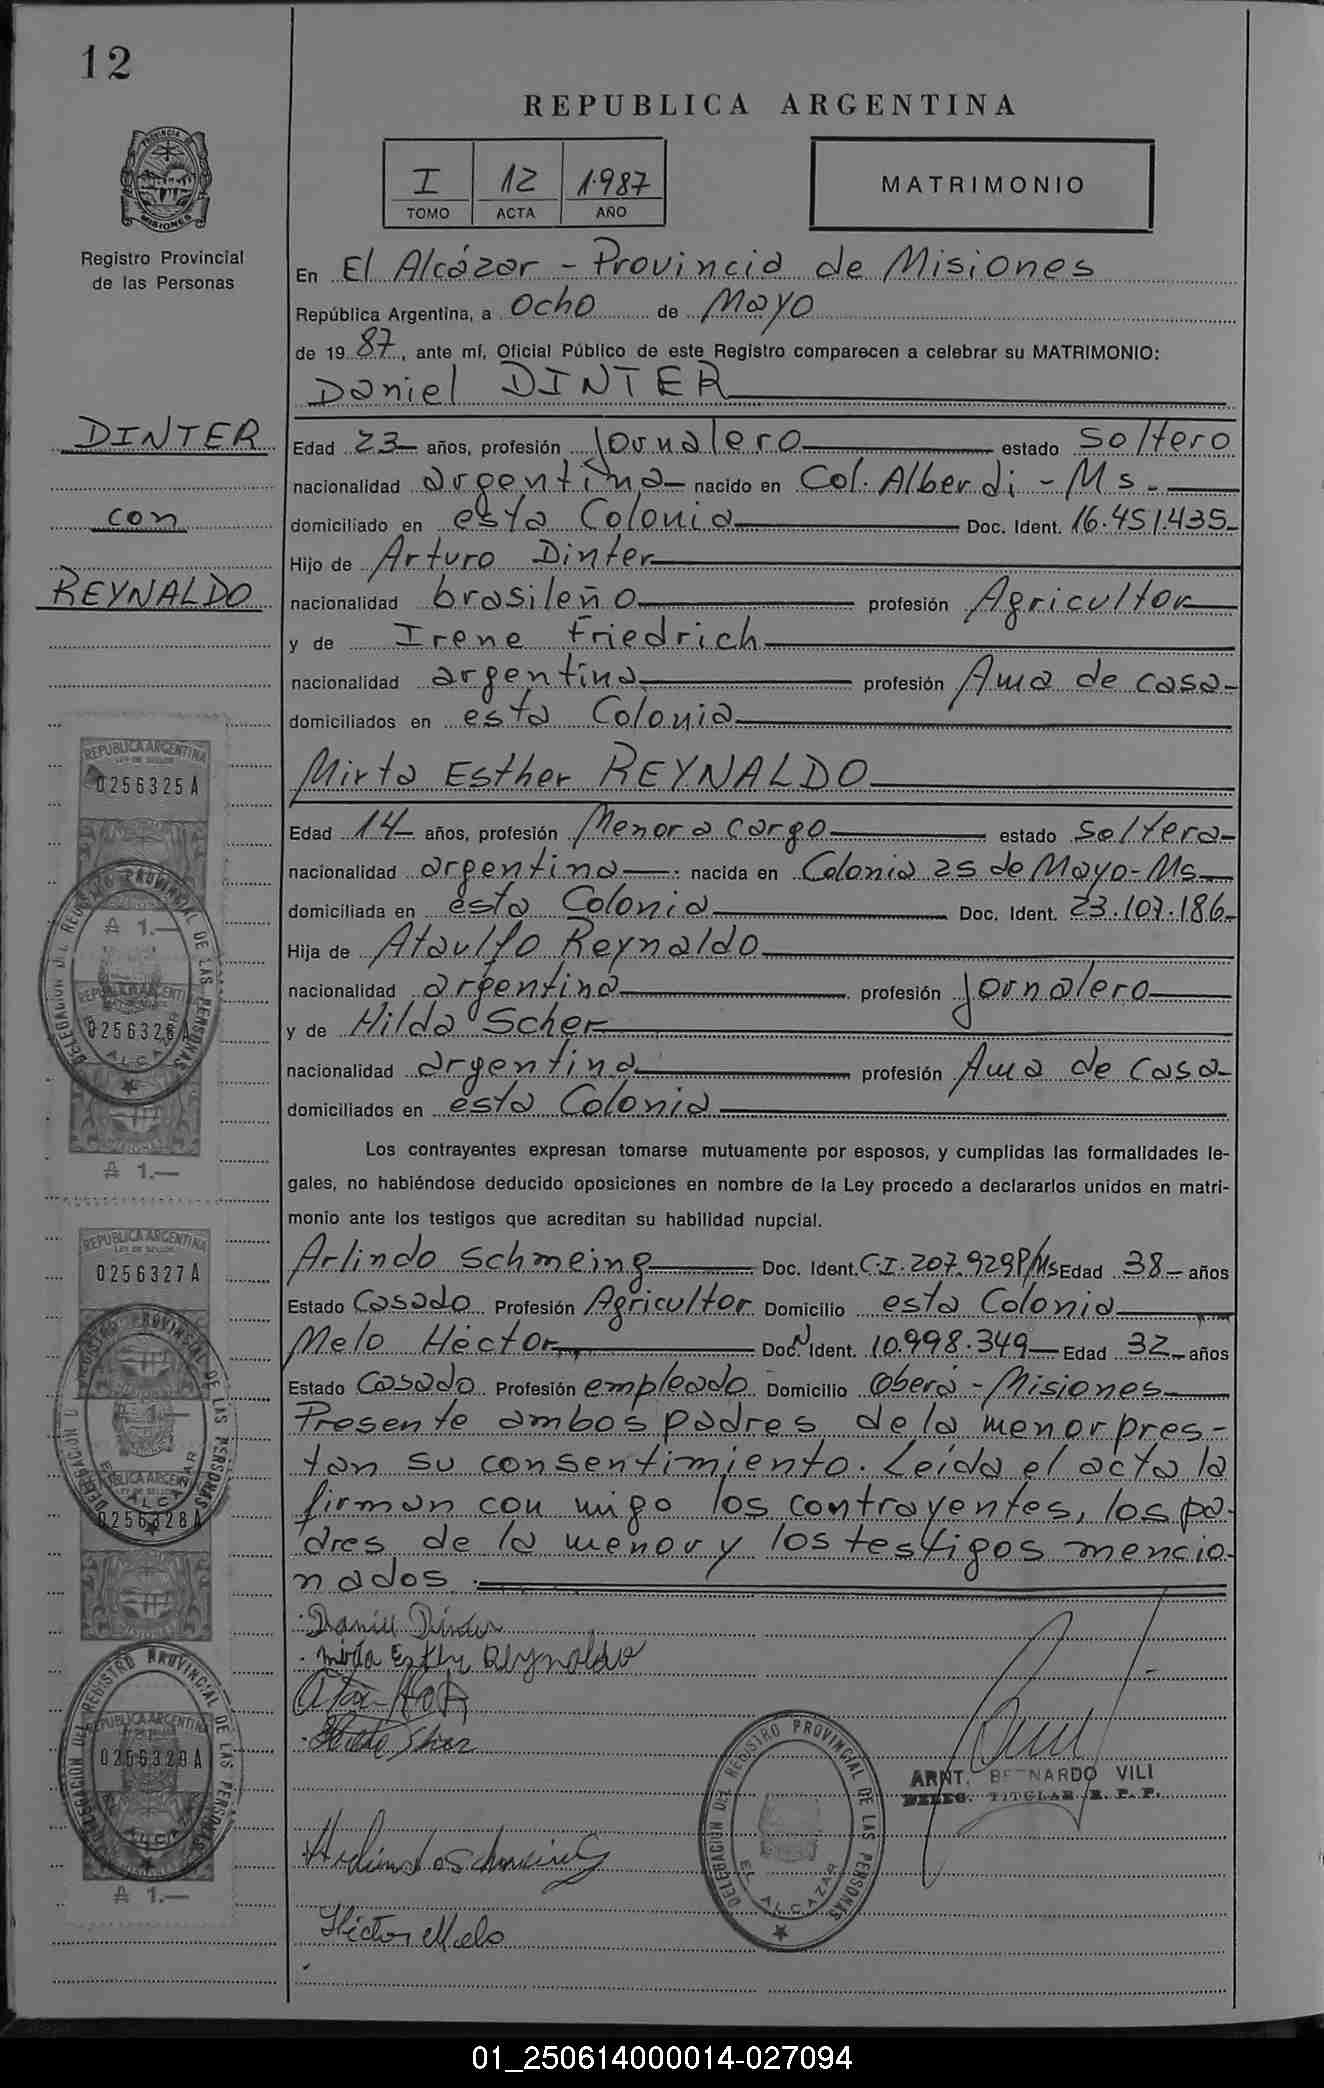 12
REPUBLICA ARGENTINA
PROVINCIA
MISIONES
Registro Provincial
de las Personas
I 12 1.987
TOMO ACTA AÑO
MATRIMONIO
En El Alcázar - Provincia de Misiones
República Argentina, a ocho de Mayo
de 19 87, ante mí, Oficial Público de este Registro comparecen a celebrar su MATRIMONIO:
Daniel DINTER
DINTER
con
REYNALDO
Edad 23 años, profesión Jornalero estado soltero
nacionalidad argentina nacido en Col. Alberdi - Ms.
domiciliado en esta Colonia Doc. Ident. 16.451.435
Hijo de Arturo Dinter
nacionalidad brasileño profesión Agricultor
y de Irene Friedrich
nacionalidad argentina profesión Ama de casa
domiciliados en esta Colonia
Mirta Esther REYNALDO
Edad 14 años, profesión Menor a cargo estado soltera
nacionalidad argentina nacida en Colonia 25 de Mayo-Ms
domiciliada en esta Colonia Doc. Ident. 23.107.186
Hija de Ataulfo Reynaldo
nacionalidad argentina profesión Jornalero
y de Hilda Scher
nacionalidad argentina profesión Ama de casa
domiciliados en esta Colonia
Los contrayentes expresan tomarse mutuamente por esposos, y cumplidas las formalidades le-
gales, no habiéndose deducido oposiciones en nombre de la Ley procedo a declararlos unidos en matri-
monio ante los testigos que acreditan su habilidad nupcial.
Arlindo Schmeing Doc. Ident. C.I. 207.929P/Ms Edad 38 años
Estado Casado Profesión Agricultor Domicilio esta Colonia
Melo Héctor Doc. Ident. 10.998.349 Edad 32 años
Estado Casado Profesión empleado Domicilio Oberá - Misiones
Presente ambos padres de la menor pres-
tan su consentimiento. Leída el acta la
firman con migo los contrayentes, los pa-
dres de la menor y los testigos mencio-
nados.
Daniel Dinter
Mirta Esther Reynaldo
Hilda Scher
Arlindo Schmeing
Héctor Melo
ARNT. BERNARDO VILI
DELEG. TITULAR R. P. P.
DELEGACION DEL REGISTRO PROVINCIAL DE LAS PERSONAS
EL ALCAZAR
REPUBLICA ARGENTINA
LEY DE SELLOS
0256325A
₳ 1.—
0256326A
₳ 1.—
REPUBLICA ARGENTINA
LEY DE SELLOS
0256327A
0256328A
REPUBLICA ARGENTINA
0256329A
₳ 1.—
DELEGACION DEL REGISTRO PROVINCIAL DE LAS PERSONAS
EL ALCAZAR
DELEGACION DEL REGISTRO PROVINCIAL DE LAS PERSONAS
EL ALCAZAR
DELEGACION DEL REGISTRO PROVINCIAL DE LAS PERSONAS
EL ALCAZAR
01_250614000014-027094